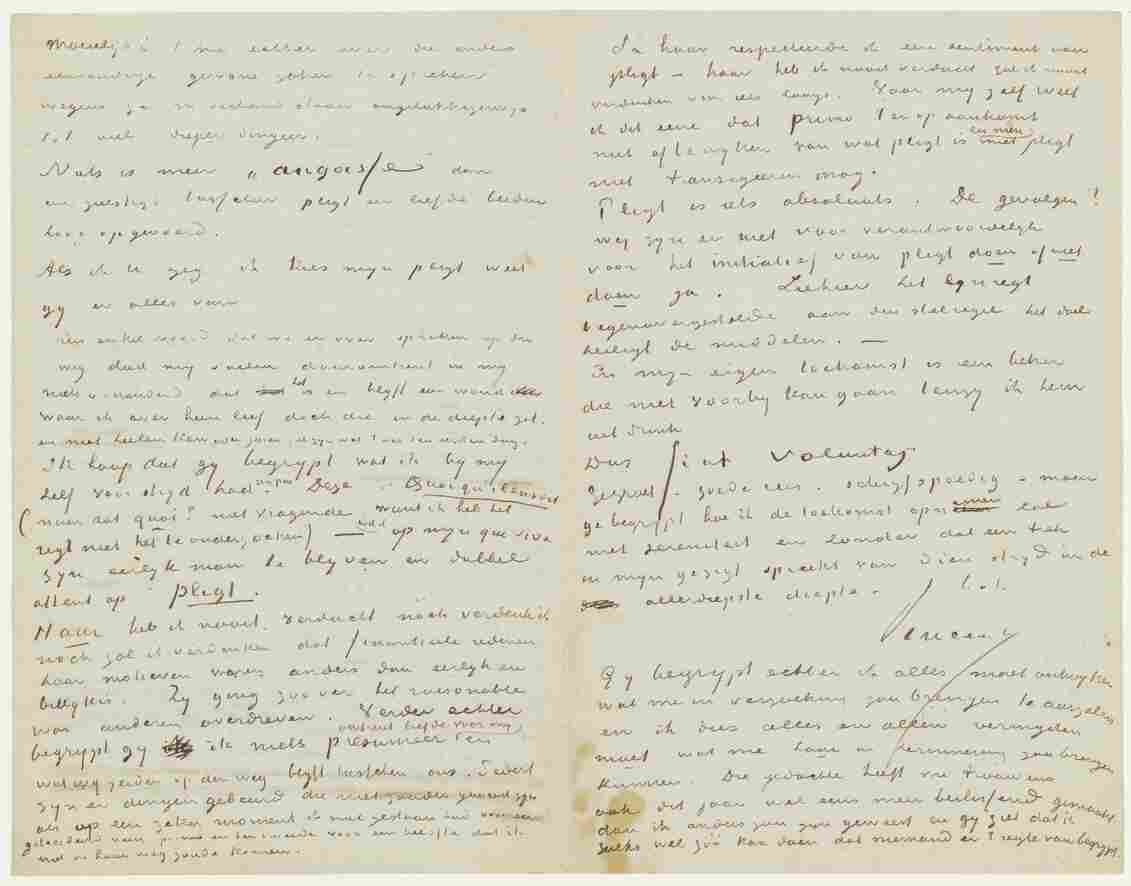 moeielijk is 't me echter over die andere
eenvoudige gewone zaken te spreken
wegens ja in verband staan ongelukkigerwijs
tot veel dieper dingen.
Niets is meer „angoissé" dan
en geestig. tusschen pligt en liefde beiden
hoog opgevoerd.
Als ik U zeg ik kies mijn pligt weet
gij er alles van
Een enkel woord dat we er over spraken op den
weg deed mij voelen dat in mij
niets veranderd dat het is en blijft een wond
waar ik over heen leef doch die in de diepte zit.
en niet heelen kan, over jaren, zijn wat 't was den eersten dag.
Ik hoop dat gij begrijpt wat ik bij mij
zelf voor strijd had. Deze – Quoiqu'il en soit
(maar dat quoi? niet vragende, want ik heb het
regt niet het te onderzoeken) op mijn qui vive
zijn eerlijk man te blijven en dubbel
attent op pligt.
Haar heb ik nooit verdacht noch verdenk ik
noch zal ik verdenken dat financieele redenen
haar motieven waren anders dan eerlijk en
billijk is. Zij ging zoover het raisonnable
was anderen overdreven. Verder echter
omtrent liefde voor mij,
begrijpt gij ik niets presumeer en
wat wij zeiden op den weg blijft tusschen ons. Sedert
zijn er dingen gebeurd die niet zouden geweest zijn
als op een zeker moment ik niet gestaan had
en ten tweede voor een belofte dat ik
niet in haar weg zoude komen.
In haar respecteerde ik een sentiment van
pligt – haar heb ik nooit verdacht zal ik nooit
verdenken van iets laags. Voor mij zelf weet
ik dit eene dat primo 't er op aankomt
niet af te wijken van wat pligt is en men met pligt
niet transigeeren mag.
Pligt is iets absoluuts. De gevolgen?
wij zijn er niet voor verantwoordelijk
voor het initiatief van pligt doen of niet
doen ja. Ziehier het lijnregt
tegenovergestelde aan den stelregel het doel
heiligt de middelen. —
En mijn eigen toekomst is een beker
die niet voorbij kan gaan tenzij ik hem
uit drink
Dus fiat voluntas
Gegroet – goede reis. – maar
ge begrijpt hoe ik de toekomst opneem zal
met sereniteit en zonder dat een trek
in mijn gezigt spreekt van dien strijd in de
allerdiepste diepte.
t. à t.
Vincent
Gij begrijpt echter ik alles moet ontwijken
wat me in verzoeking zou brengen te aarzelen
en ik dus alles en allen vermijden
moet wat me haar in herinnering zou brengen
kunnen. Die gedachte heeft me trouwens
ook dit jaar wel eens meer beslissend gemaakt
dan ik anders zou zijn geweest en gij ziet dat ik
zulks wel zóó kan doen dat niemand er 't regte van begrijpt.